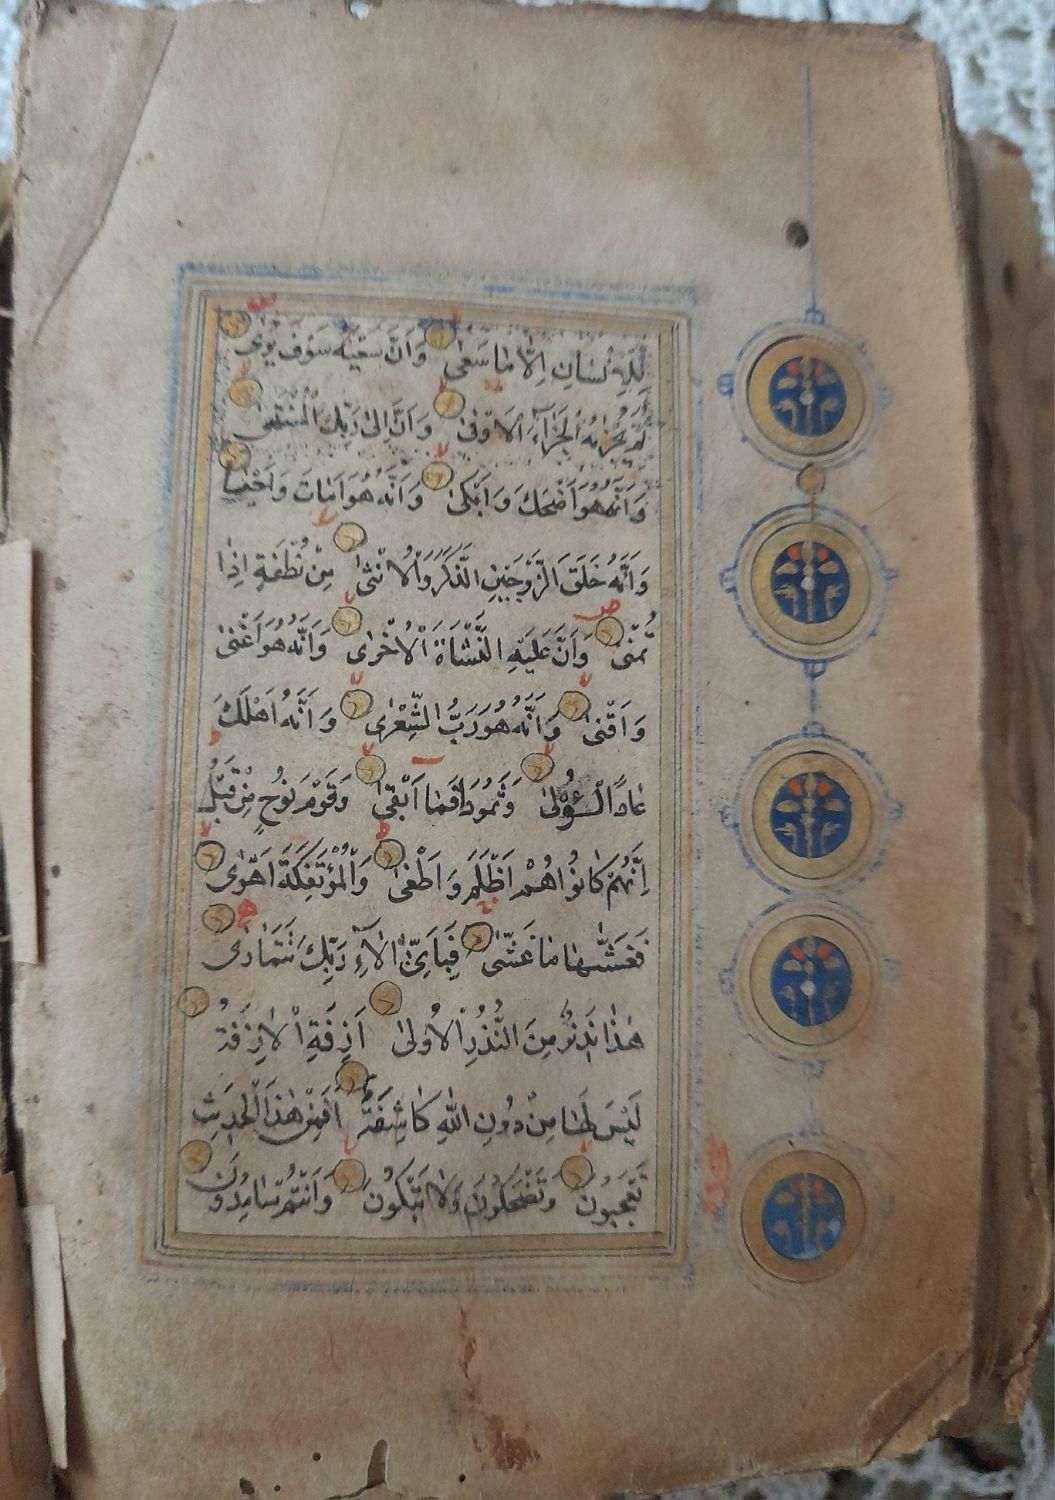 لِلْاِنْسَانِ اِلَّا مَا سَعٰى وَاَنَّ سَعْيَهُ سَوْفَ يُرٰى
ثُمَّ يُجْزٰيهُ الْجَزَآءَ الْاَوْفٰى وَاَنَّ اِلٰى رَبِّكَ الْمُنْتَهٰى
وَاَنَّهُ هُوَ اَضْحَكَ وَاَبْكٰى وَاَنَّهُ هُوَ اَمَاتَ وَاَحْيَا
وَاَنَّهُ خَلَقَ الزَّوْجَيْنِ الذَّكَرَ وَالْاُنْثٰى مِنْ نُطْفَةٍ اِذَا
تُمْنٰى وَاَنَّ عَلَيْهِ النَّشْاَةَ الْاُخْرٰى وَاَنَّهُ هُوَ اَغْنٰى
وَاَقْنٰى وَاَنَّهُ هُوَ رَبُّ الشِّعْرٰى وَاَنَّهُ اَهْلَكَ
عَادًا الْاُوْلٰى وَثَمُودَا فَمَا اَبْقٰى وَقَوْمَ نُوحٍ مِنْ قَبْلُ
اِنَّهُمْ كَانُوا هُمْ اَظْلَمَ وَاَطْغٰى وَالْمُؤْتَفِكَةَ اَهْوٰى
فَغَشّٰيهَا مَا غَشّٰى فَبِاَيِّ اٰلَآءِ رَبِّكَ تَتَمَارٰى
هٰذَا نَذِيرٌ مِنَ النُّذُرِ الْاُولٰى اَزِفَتِ الْاٰزِفَةُ
لَيْسَ لَهَا مِنْ دُونِ اللّٰهِ كَاشِفَةٌ اَفَمِنْ هٰذَا الْحَدِيثِ
تَعْجَبُونَ وَتَضْحَكُونَ وَلَا تَبْكُونَ وَاَنْتُمْ سَامِدُونَ